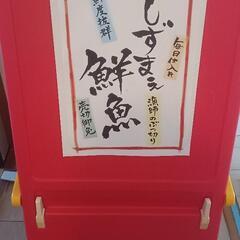 毎日仕入れ
漁師のぶっ切り
しずまえ
鮮魚
鮮度抜群
売切御免